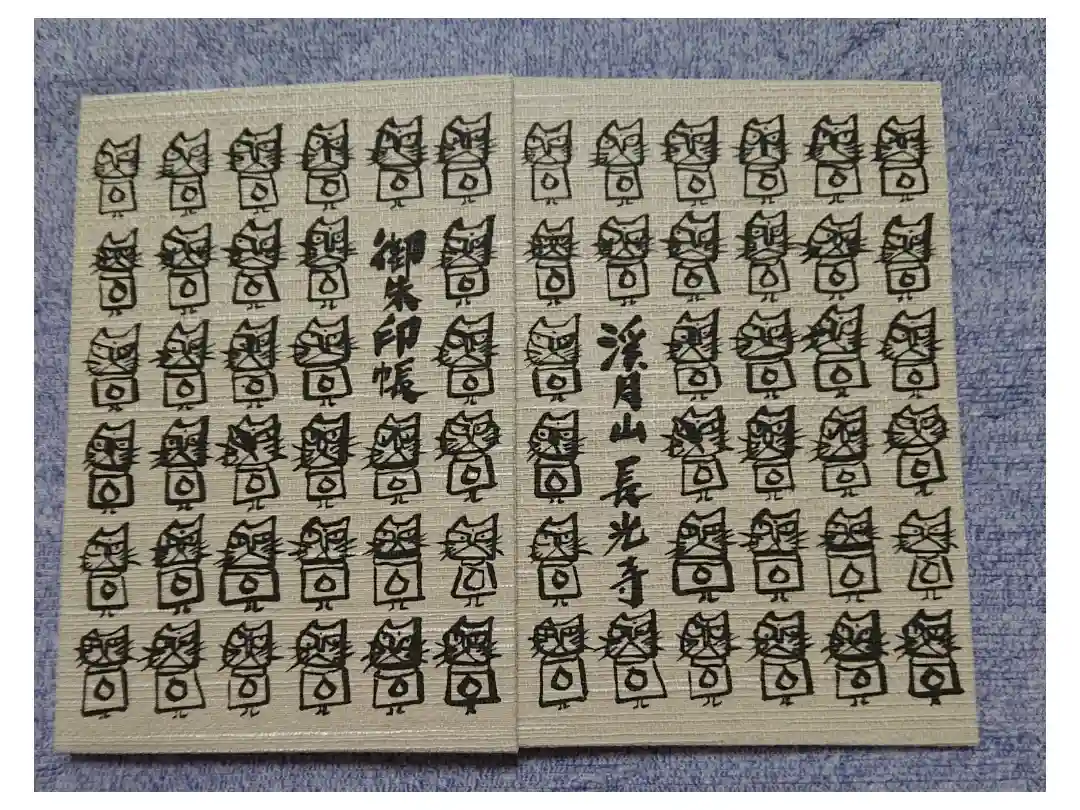 御朱印帳
渓月山 長光寺